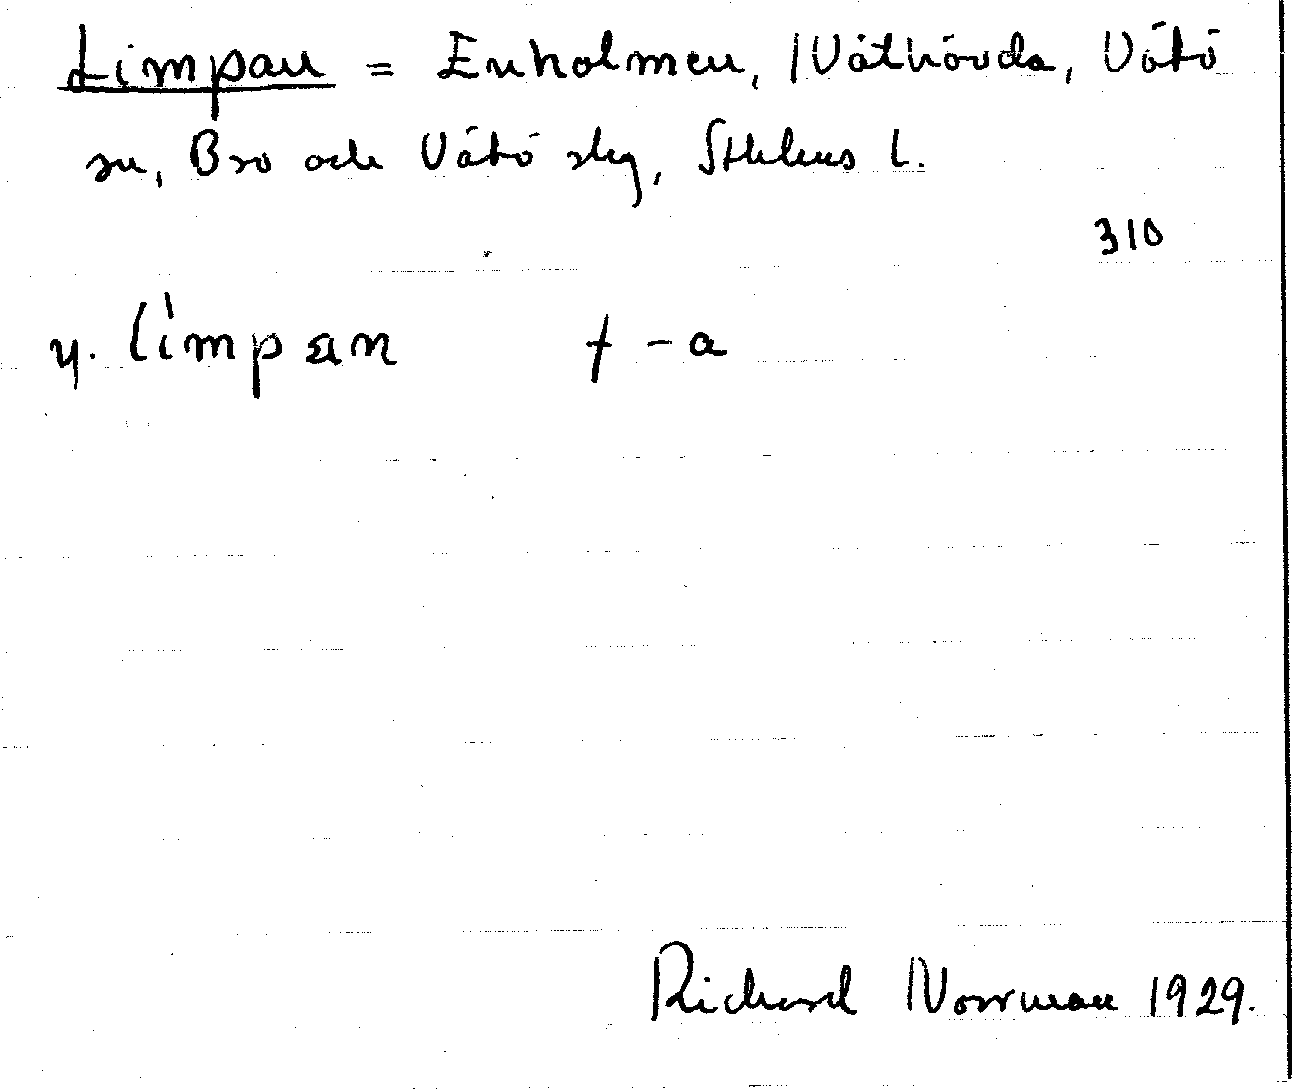 Limpan = Enholmen, Våthövda, Vätö
sn, Bro och Vätö skg, Sthlms L.
310
y. limpan † -a
Richard Norrman 1929.